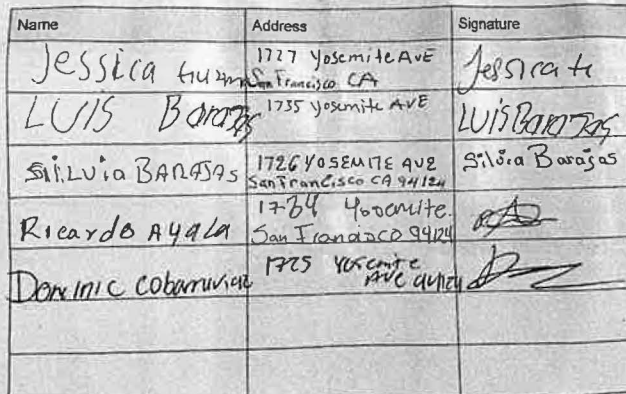 Name Address Signature
Jessica 1727 Yosemite AvE
San Francisco CA Jessica H
LUIS Barajas 1735 Yosemite AVE LUIS Barajas
SiLVia BARAJAS 1726 YOSEMITE AVE
San Francisco CA 94124 Silvia Barajas
Ricardo Ayala 1734 Yosemite.
San Francisco 94124
Dominic Cobarruviaz 1725 Yosemite
AVE 94124